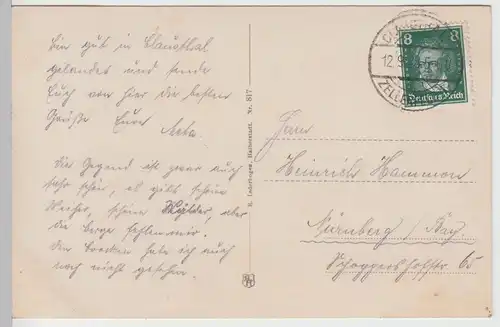 Bin gut in Clausthal
gelandet und sende
Euch von hier die besten
Grüße Eure
Die Gegend ist zwar auch
sehr schön, es gibt schöne
Weiher, schöne Wälder, aber
die Berge fehlen mir.
Den Brocken habe ich auch
noch nicht gesehen.
R. Lederbogen, Halberstadt. Nr. 817
8 8
Deutsches Reich
12.9
ZELLERF
Herrn
Heinrich Hammon
Nürnberg / Bay.
65